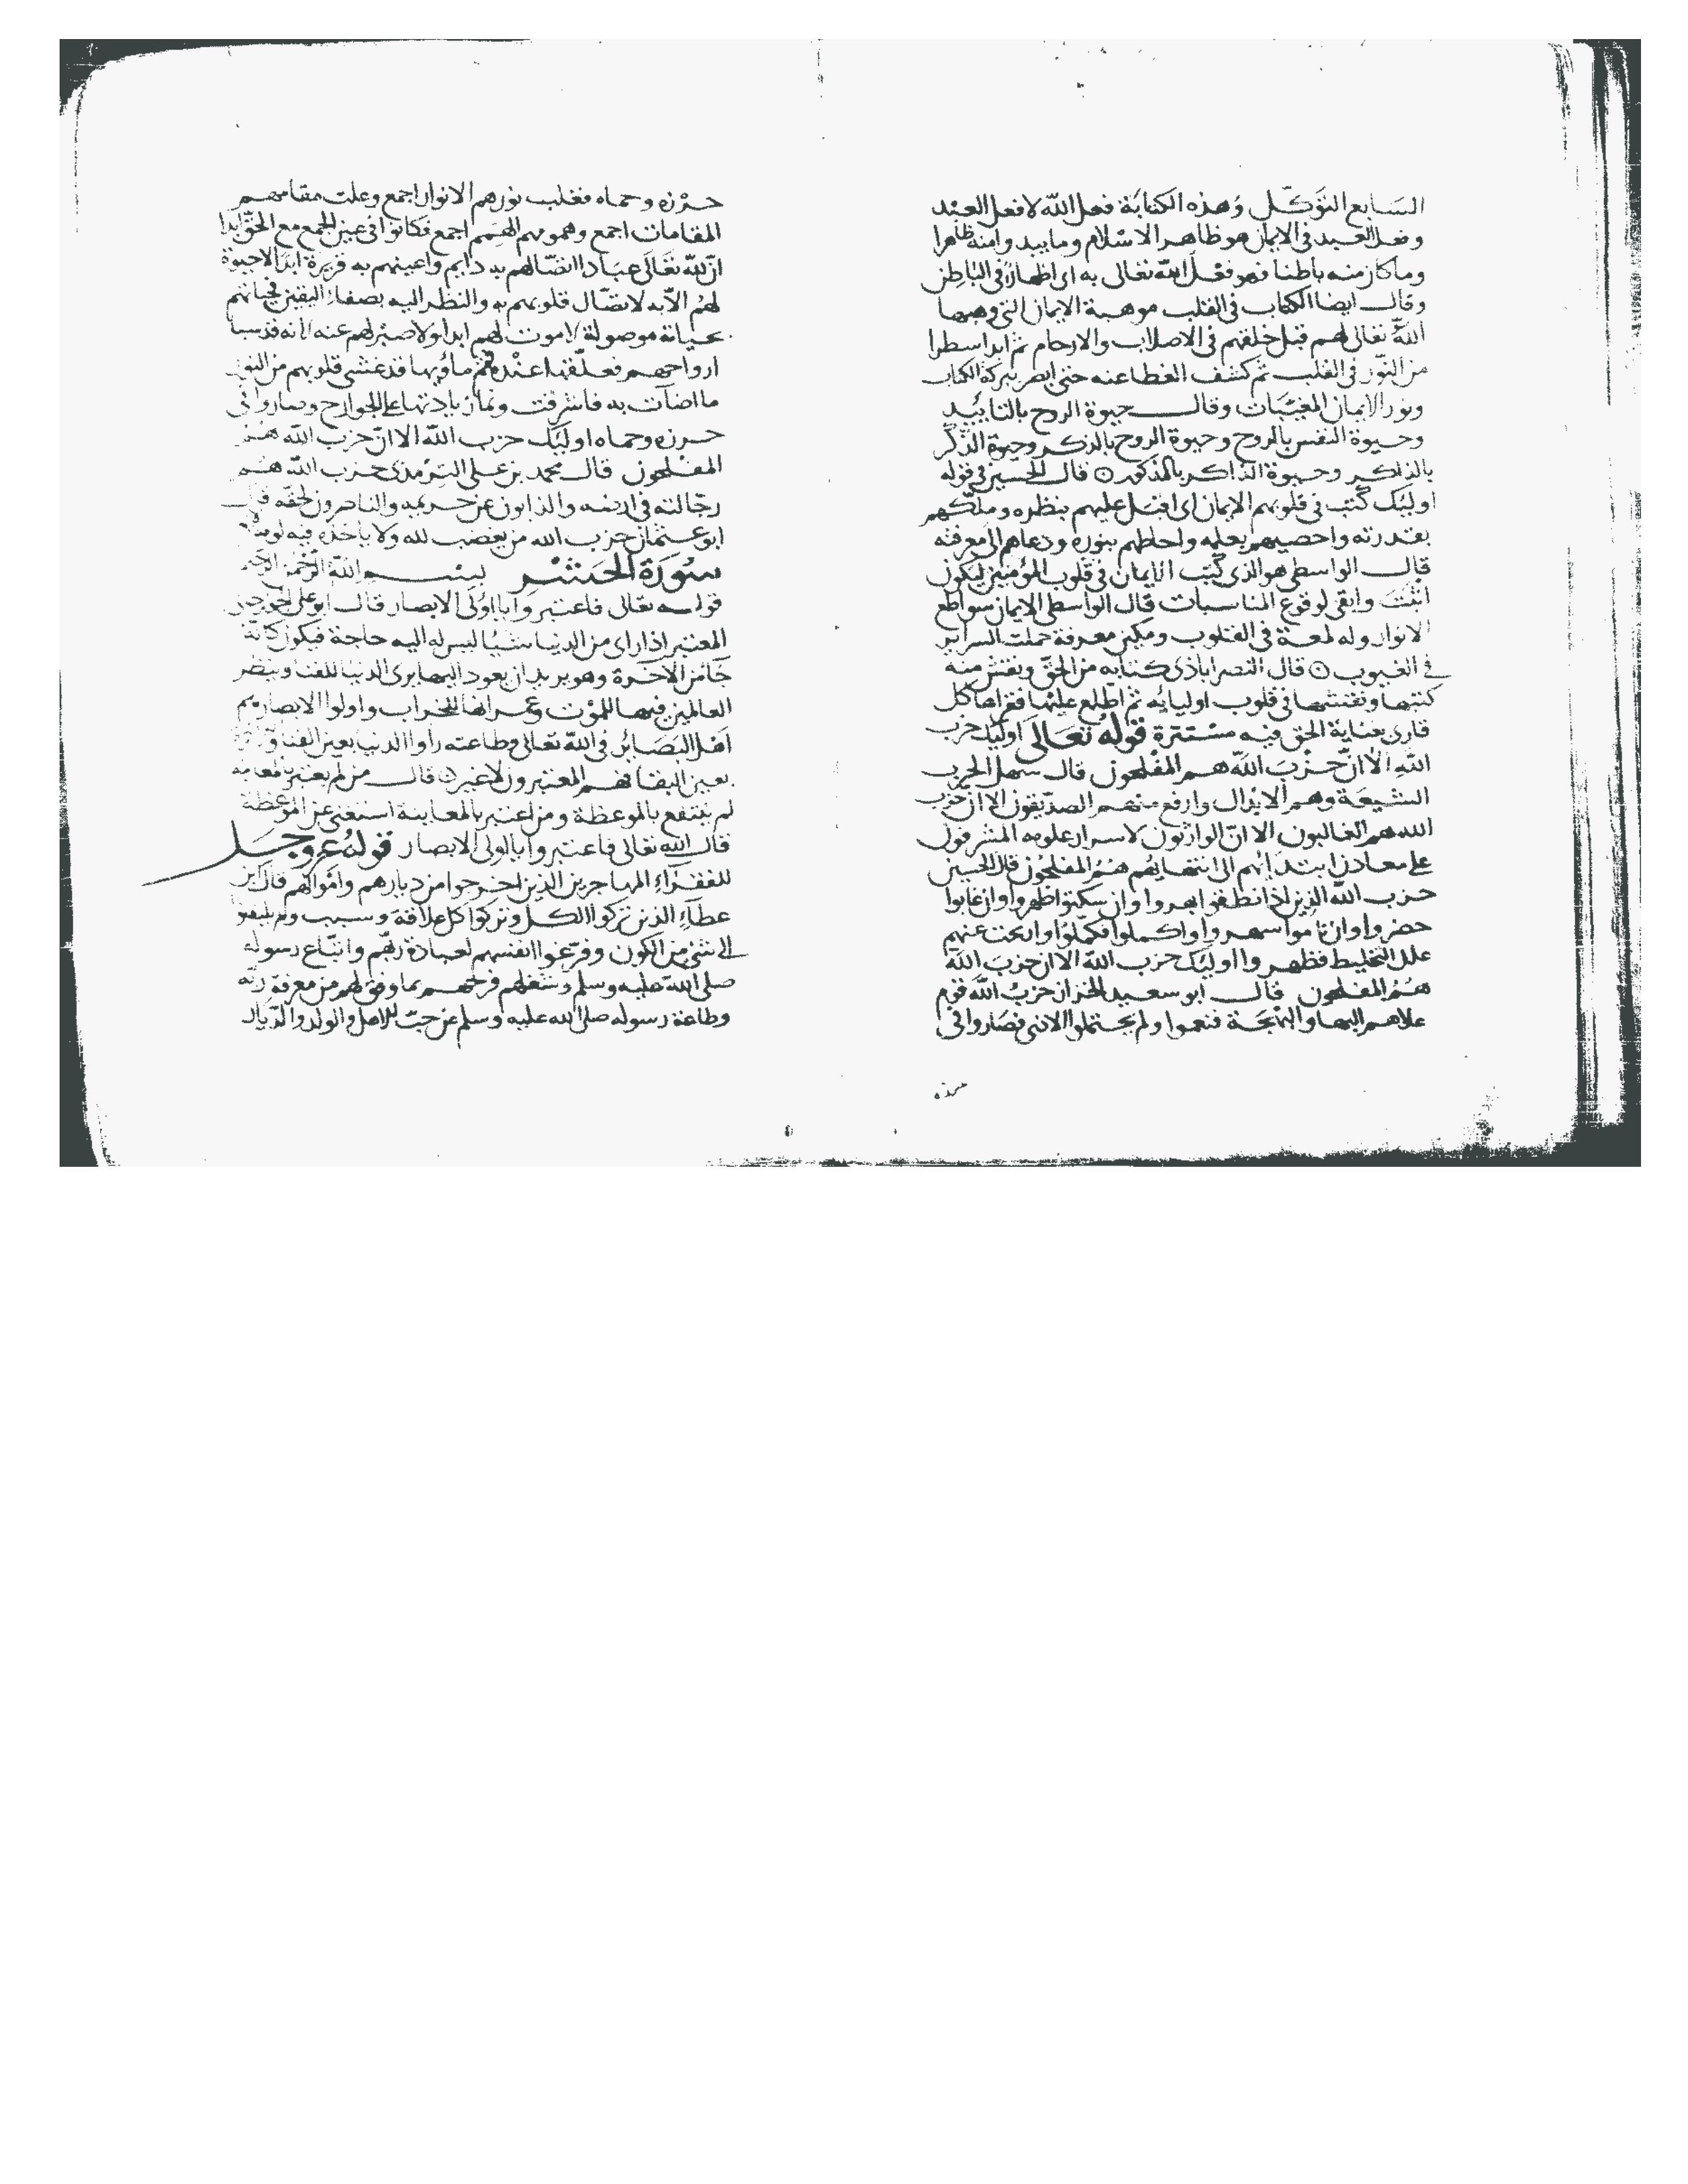 السابع التوكل وهذه الكتابة فعل الله لا فعل العبد
وفعل العبد في الايمان هو ظاهر الاسلام وما يبدوا منه ظاهرا
وما كان منه باطنا فهو فعل الله تعالى به اى اظهار في الباطن
وقال ايضا الكتاب في القلب موهبة الايمان التي وهبها
الله تعالى لهم قبل خلقهم في الاصلاب والارحام ثم ابدا سطرا
من النور في القلب ثم كشف الغطا عنه حتى ابصر ببركة الكتاب
ونور الايمان المغيبات وقال حيوة الروح بالتاييد
وحيوة النفس بالروح وحيوة الروح بالذكر وحيوة الذكر
بالذاكر وحيوة الذاكر بالمذكور قال الحسين في قوله
اوليك كتب في قلوبهم الايمان اى اقبل عليهم بنظره وملكهم
بقدرته واحصيهم بعلمه واحاطهم بنوره ودعاهم الى معرفته
قال الواسطى هو الذى كتب الايمان في قلوب المؤمنين ليكون
اثبت وابقى لوقوع المناسبات قال الواسطى الايمان سواطع
الانوار وله لمعة في القلوب ومكين معرفة حملت السراير
في الغيوب قال النصراباذى كتابه من الحق ونقش منه
كتبها ونقشها في قلوب اوليائه ثم اطلع عليها فقراها كل
قارى بعناية الحق فيه مستترة قوله تعالى اوليك حزب
الله الا ان حزب الله هم المفلحون قال سهل الحزب
الشيعة وهم الابدال وارفع منهم الصديقون الا ان حزب
الله هم الغالبون الا ان الوارثون لاسرار علومه المشرفون
على معادن ابتدائهم الى انتهايهم هم المفلحون قال الحسين
حزب الله الذين اذا نطقوا بهروا وان سكتوا ظهروا وان غابوا
حضروا وان ناموا سهروا واكملوا فكملوا وازيحت عنهم
علل التخليط فطهروا اوليك حزب الله الا ان حزب الله
هم المفلحون قال ابو سعيد الخراز حزب الله قوم
علاهم البها والبهجة فنعموا ولم يحتملوا الاذى فصاروا في
حرزه
حرزه وحماه فغلب نورهم الانوار اجمع وعلت مقامهم
المقامات اجمع وهمومهم الهمم اجمع فكانوا في عين الجمع مع الحق ابدا
ان لله تعالى عبادا اتصالهم به دايم واعينهم به قريرة ابدا لا حيوة
لهم الا به لاتصال قلوبهم به والنظر اليه بصفاء اليقين فحياتهم
بحياته موصولة لا موت لهم ابدا ولا صبر لهم عنه لانه قد سبا
ارواحهم فعلقها عنده فثم ماؤيها قد غشى قلوبهم من النور
ما اضاءت به فاشرقت ونما زيادتها على الجوارح وصاروا في
حرزه وحماه اوليك حزب الله الا ان حزب الله هم
المفلحون قال محمد بن على الترمذى حزب الله هم
رجالته في ارضه والذابون عن حريمه والناصرون لحقه قال
ابو عثمان حزب الله من يغضب لله ولا ياخذه فيه لومة
سورة الحشر بسم الله الرحمن الرحيم
قوله تعالى فاعتبروا يا اولى الابصار قال ابو على الجوزجانى
المعتبر اذا راى من الدنيا شيا ليس له اليه حاجة فيكون كانه
جا من الاخرة وهو يريد ان يعود اليها يرى الدنيا للفنا وينظر
العالمين فيها للموت وعمرانها للخراب واولوا الابصار هم
اهل البصائر في الله تعالى وطاعته راوا الدنيا بعين الفنا والاخرة
بعين البقا فهم المعتبرون لا غير قال من لم يعتبر بالمعاينة
لم ينتفع بالموعظة ومن اعتبر بالمعاينة استغنى عن الموعظة
قال الله تعالى فاعتبروا يا اولى الابصار قوله عز وجل
للفقراء المهاجرين الذين اخرجوا من ديارهم واموالهم قال ابن
عطاء الذين تركوا الكل وتركوا كل علاقة وسبب ولم يلتفتوا
الى شئ من الكون وفرغوا انفسهم لعبادة ربهم واتباع رسوله
صلى الله عليه وسلم وشغلهم فرحهم بما وفق لهم من معرفة ربه
وطاعة رسوله صلى الله عليه وسلم عن حب الاهل والولد والديار